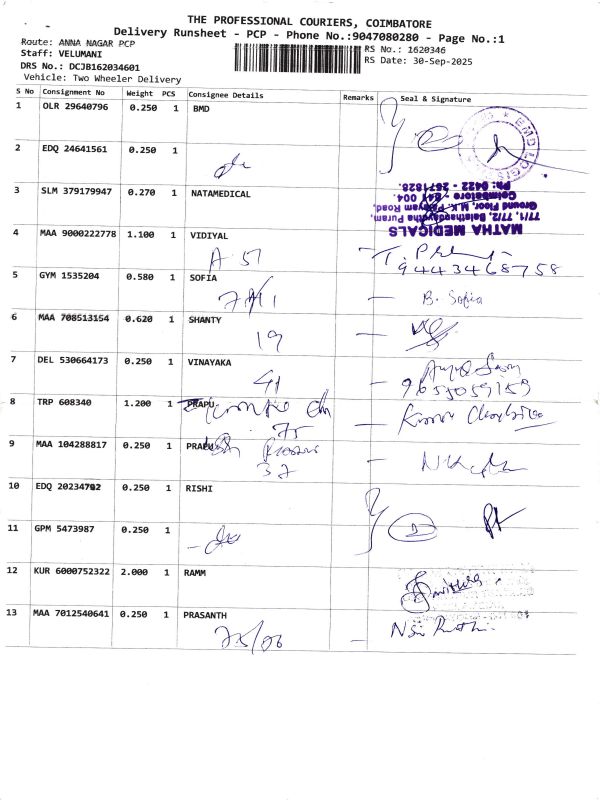 THE PROFESSIONAL COURIERS, COIMBATORE
Delivery Runsheet - PCP - Phone No.:9047080280 - Page No.:1
Route: ANNA NAGAR PCP
Staff: VELUMANI
DRS No.: DCJB162034601
Vehicle: Two Wheeler Delivery
RS No.: 1620346
RS Date: 30-Sep-2025
S No Consignment No Weight PCS Consignee Details Remarks Seal & Signature
1 OLR 29640796 0.250 1 BMD
2 EDQ 24641561 0.250 1
3 SLM 379179947 0.270 1 NATAMEDICAL
MATHA MEDICALS
77/1, 77/2, Balathandayutha Puram,
Ground Floor, M.K. Road,
Coimbatore - 641 004.
Ph: 0422 - 2671828.
4 MAA 9000222778 1.100 1 VIDIYAL
A 51
9443468758
5 GYM 1535204 0.580 1 SOFIA
B. Sofia
6 MAA 708513154 0.620 1 SHANTY
19
7 DEL 530664173 0.250 1 VINAYAKA
41
9653059159
8 TRP 608340 1.200 1 PRAPU
75
9 MAA 104288817 0.250 1 PRAPU
37
10 EDQ 20234702 0.250 1 RISHI
11 GPM 5473987 0.250 1
12 KUR 6000752322 2.000 1 RAMM
13 MAA 7012540641 0.250 1 PRASANTH
75/06